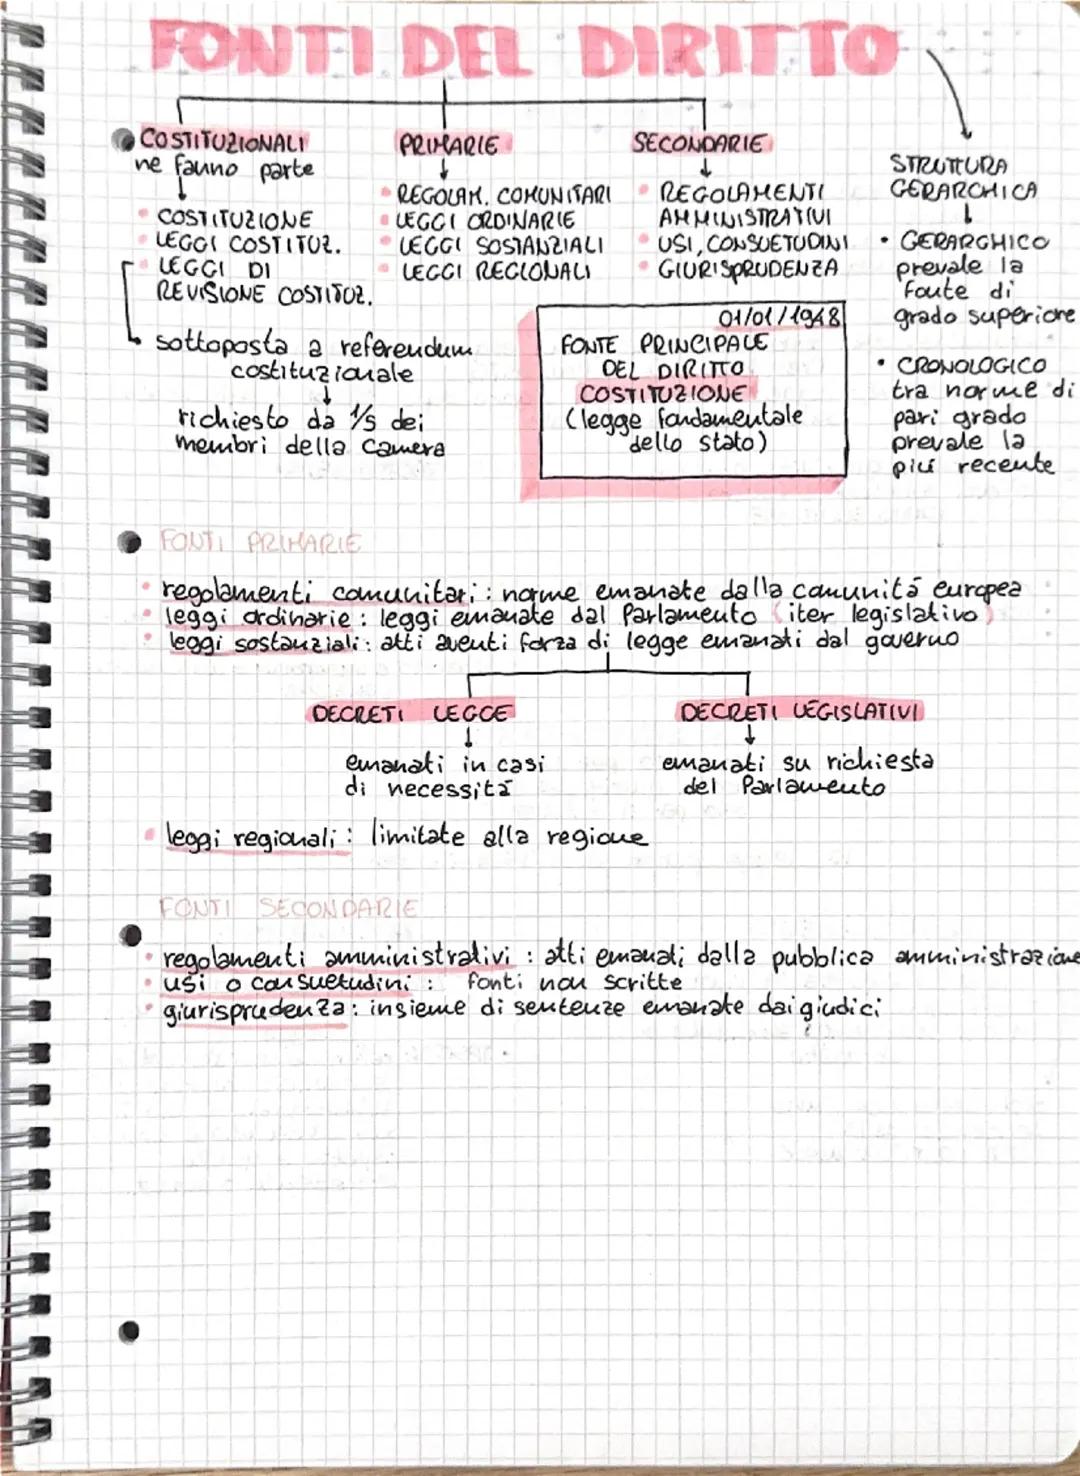 FONTI DEL DIRITTO
COSTITUZIONALI
ne fanno parte
COSTITUZIONE
LEGGI COSTITUZ.
LEGGI DI
REVISIONE COSTITUZ.
sottoposta a referendum
costituzionale
richiesto da 1/5 dei
membri della camera
PRIMARIE
REGOLAM. COMUNITARI
LEGGI ORDINARIE
LEGGI SOSTANZIALI
LEGGI REGIONALI
SECONDARIE
REGOLAMENTI
AMMINISTRATIVI
USI, CONSUETUDINI
GIURISPRUDENZA
01/01/1948
FONTE PRINCIPALE
DEL DIRITTO
COSTITUZIONE
(legge fondamentale
dello stato)
STRUTTURA
GERARCHICA
• GERARCHICO
prevale la
fonte di
grado superiore
• CRONOLOGICO
tra norme di
pari grado
prevale la
più recente
FONTI PRIMARIE
• regolamenti comunitari: norme emanate dalla comunitá europea
• leggi ordinarie: leggi emanate dal Parlamento (iter legislativo)
• leggi sostanziali: atti aventi forza di legge emanati dal governo
DECRETI LEGGE
emanati in casi
di necessitá
DECRETI LEGISLATIVI
emanati su richiesta
del Parlamento
• leggi regionali: limitate alla regione
FONTI SECONDARIE
• regolamenti amministrativi: atti emanati dalla pubblica amministrazione
• usi o consuetudini: fonti non scritte
• giurisprudenza: insieme di sentenze emanate dai giudici